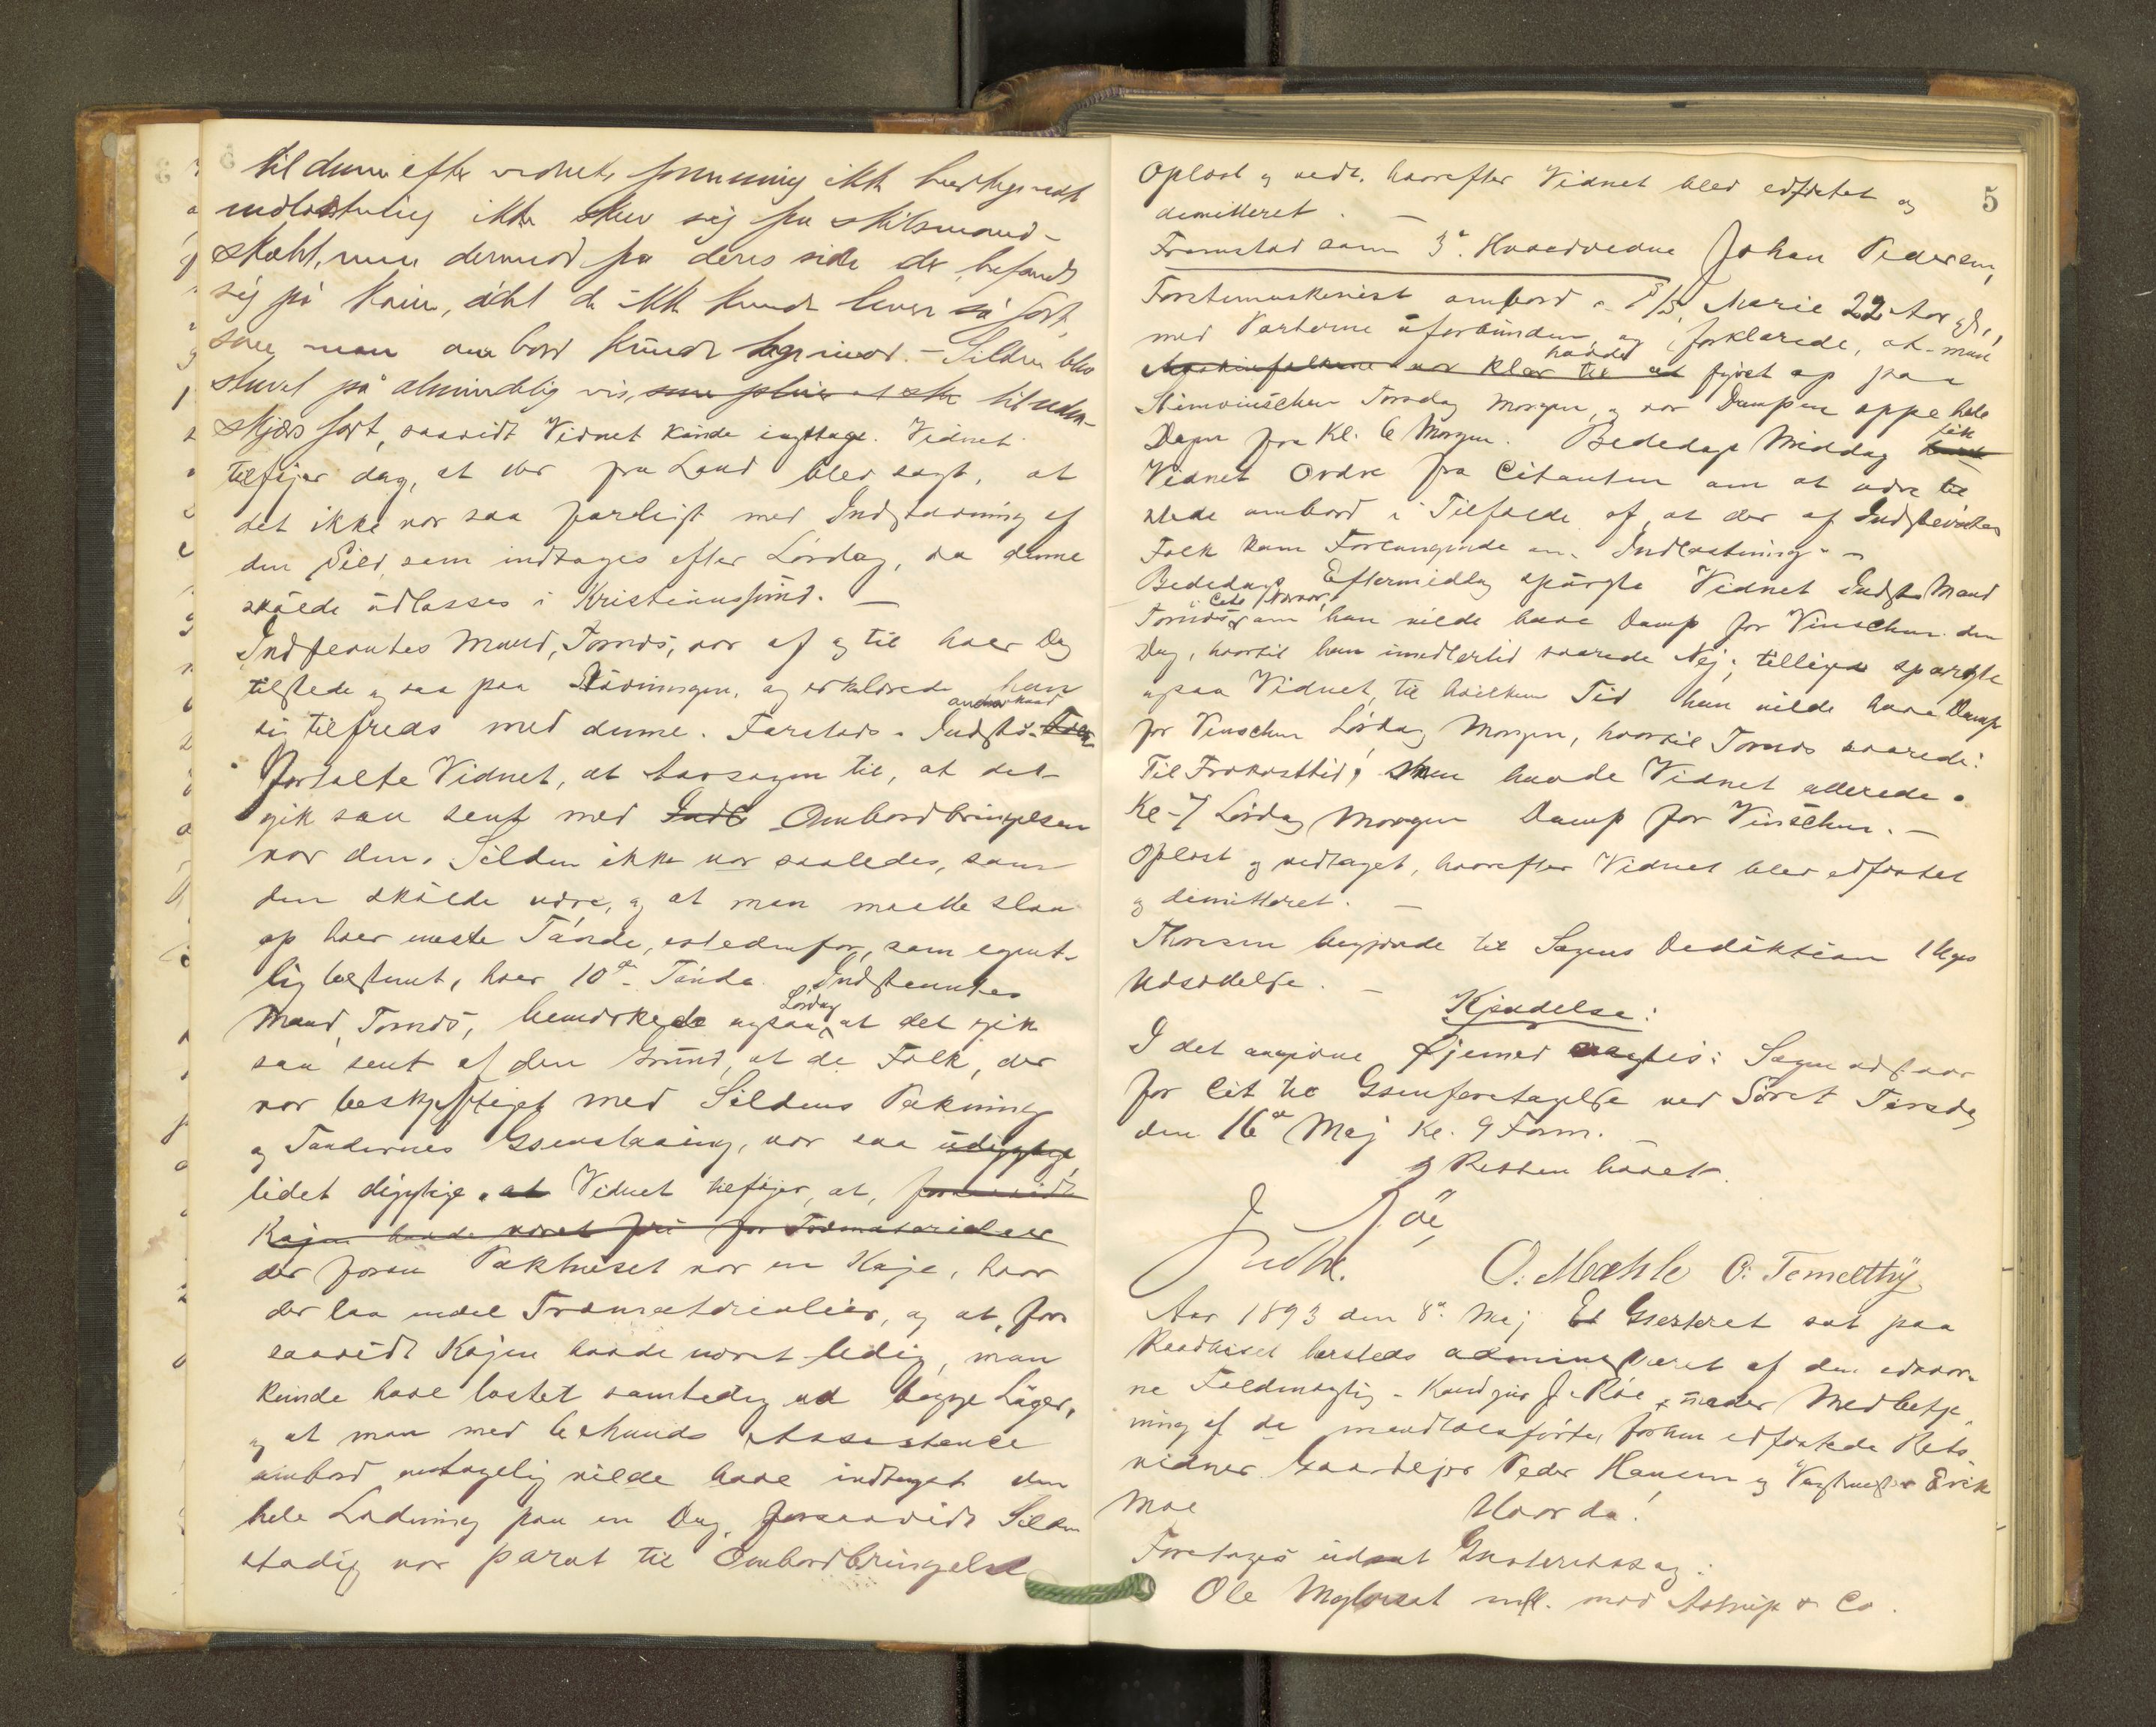 til denne efter vidnets formening ikke
indlastning ikke skrev sig fra
men dermed fra deres side der befandt
sig på Kaien, idet de ikke kunde levere så fort,
som man ombord kunde tage imod. - Silden blev
stuvet på almindelig vis, som pleier at ske til uden-
skjærs fart, saavidt Vidnet kunde iagttage. Vidnet
tilføjer dog, at der fra Land blev sagt, at
det ikke var saa farligt med Indstuvning af
den Sild, som indtages efter Lørdag, da denne
skulde udlosses i Kristianssund. —
Indstevntes Mand, Tornös, var af og til hver Dag
tilstede og saa paa Stuvningen, og erklærede han
sig tilfreds med denne. Farstads. Indst's
fortalte Vidnet, at Aarsagen til, at det
gik saa sent med Indl Ombordbringelsen
var den, Silden ikke var saaledes, som
den skulde være, og at man maatte slaa
op hver eneste Tønde, istedenfor, som egent-
lig bestemt, hver 10de Tønde. Indstevntes
Mand, Tornös, bemærkede ogsaa Lørdag at det gik
saa sent af den Grund, at de Folk, der
var beskjæftiget med Sildens Pakning
og Tøndernes Gjenslaaing, var saa udygtige
lidet dygtige. at Vidnet tilføjer, at, forsaavidt
Kajen havde været fri for Træmaterialier
der foran Pakhuset var en Kaje, hvor
der laa endel Træmaterialier, og at, for
saavidt Kajen havde været ledig, man
kunde have lastet samtidig ved begge Luger,
og at man med bekunds Assistance
ombord antagelig vilde have indtaget den
hele Ladning paa en Dag, forsaavidt Silden
stadig var parat til Ombordbringelse
5
Oplæst og vedt. hvorefter Vidnet blev edfæstet og
demitteret. —
Fremstod som 3die Hovedvidne Johan Pedersen,
Førstemaskinist ombord i D/S. Marie 22 Aar gl.,
med Parterne uforbunden og forklarede, at man
Maskinfolkene var klar til at havde fyret op paa
Stimvinschen Torsdag Morgen, og var Dampen oppe hele
Dagen fra Kl. 6 Morgen. Bededags Middag fik
Vidnet Ordre fra Citanten om at være til
stede ombord i Tilfælde af, at der af Indstevntes
Folk kom Forlangende om Indlastning. —
Bededags Eftermiddag spurgte Vidnet Indst's Mand
Tornös, om han vilde have Damp for Vinschen den
Dag, hvortil han imidlertid svarede Nej; tilligemed spurgte
ogsaa Vidnet, til hvilken Tid han vilde have Damp
for Vinschen Lørdag Morgen, hvortil Tornös svarede:
Til Frokosttid; Men havde Vidnet allerede
Kl. 7 Lørdag Morgen Damp for Vinschen. —
Oplæst og vedtaget, hvorefter Vidnet blev edfæstet
og dimitteret. —
Thoresen begjærede til Sagens Deduktion 1 Uges
Udsættelse. —
Kjendelse:
I det angivne Øjemed vagtes: Sagen udstaar
for Cit. til Gjenforetagelse ved Søret Tirsdag
den 16de Maj Kl. 9 Form.
og Retten hævet.
J Röe
O. Mæhle O. Tomelthy
Aar 1893 den 8de Maj Et Gjesteret sat paa
Raadhuset hersteds administreret af den edsvor-
ne Fuldmægtig - Kand. jur J. Röe, under Medbetje-
ning af de mandtalsførte, forhen edfæstede Rets-
vidner Gaardejer Peder Hansen og Vagtmester Erik
Moe Hvorda!
Foretages udsat Gjesteretssag:
Ole Myloesat mfl. mod Astrup & Co.